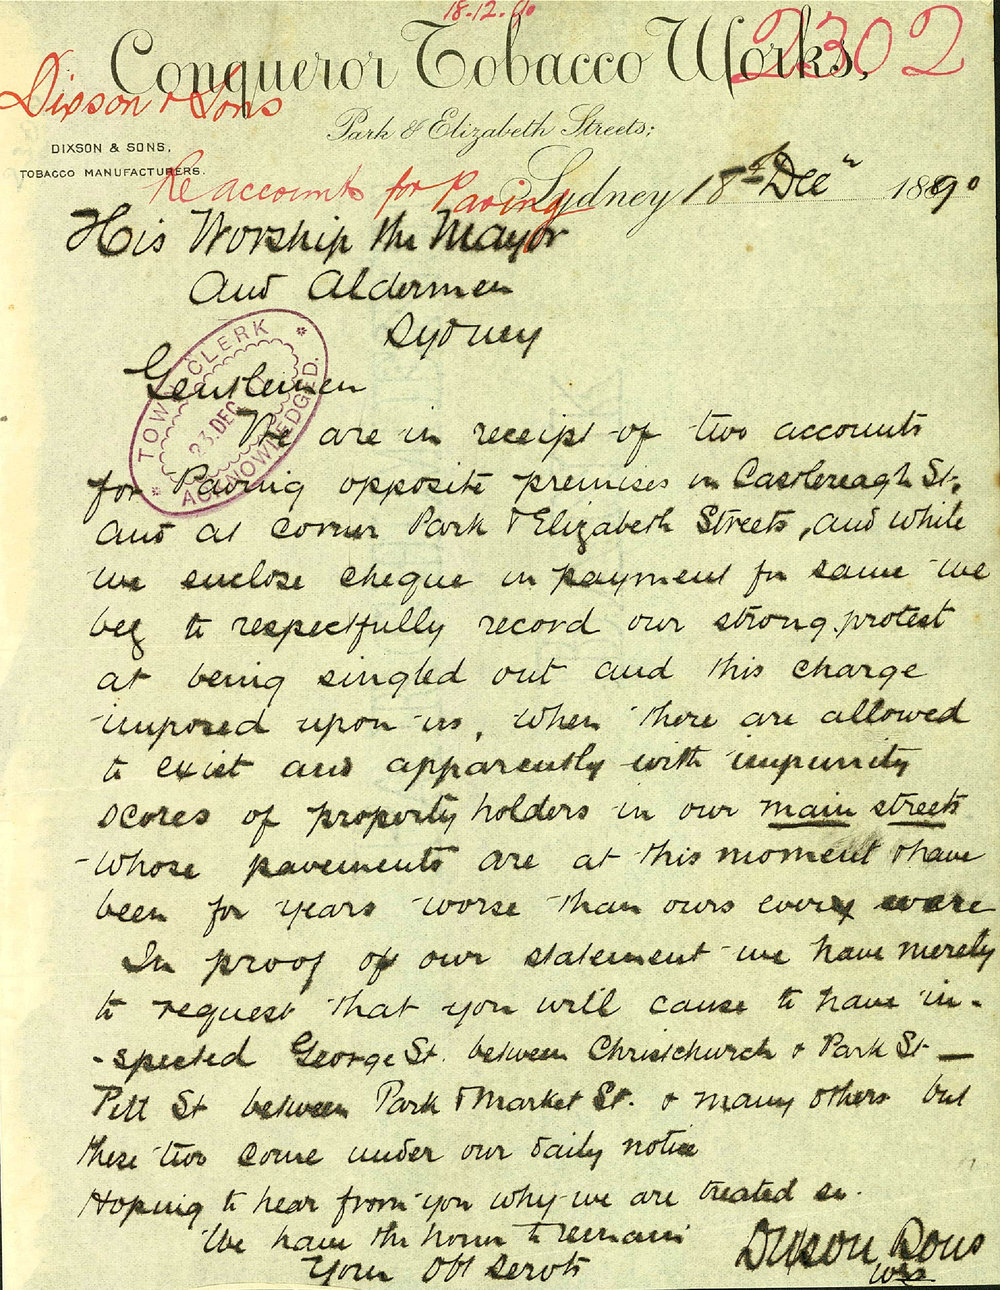 18.12.90
2302
Conqueror Tobacco Works,
Dixson & Sons
Park & Elizabeth Streets;
DIXSON & SONS,
TOBACCO MANUFACTURERS.
Re accounts for Paving
Sydney 18th Decr 1890
His Worship the Mayor
and Aldermen
Sydney
TOWN CLERK
23. DEC
ACKNOWLEDGED.
Gentlemen
We are in receipt of two accounts
for Paving opposite premises in Castlereagh St,
and at corner Park & Elizabeth Streets, and while
we enclose cheque in payment for same we
beg to respectfully record our strong protest
at being singled out and this charge
imposed upon us, when there are allowed
to exist and apparently with impunity
scores of property holders in our main streets
whose pavements are at this moment & have
been for years worse than ours ever were
In proof of our statement we have merely
to request that you will cause to have in-
-spected George St. between Christchurch & Park St —
Pitt St between Park & Market St. & many others but
these two come under our daily notice
Hoping to hear from you why we are treated so.
We have the honor to remain
Your Obt Servts
Dixson Sons